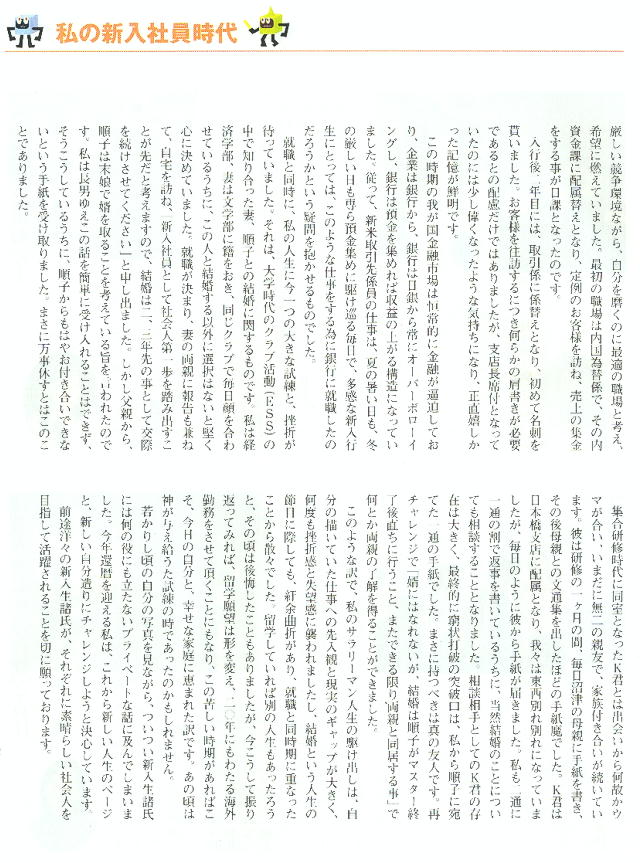 私の新入社員時代
厳しい競争環境ながら、自分を磨くのに最適の職場と考え、
希望に燃えていました。最初の職場は内国為替係で、その内
資金課に配属替えとなり、定例のお客様を訪ね、売上の集金
をする事が日課となったのです。
入行後一年目には、取引係に係替えとなり、初めて名刺を
貰いました。お客様を往訪するにつき何らかの肩書きが必要
であるとの配慮だけではありましたが、支店長席付となって
いたのには少し偉くなったような気持ちになり、正直嬉しか
った記憶が鮮明です。
この時期の我が国金融市場は恒常的に金融が逼迫してお
り、企業は銀行から、銀行は日銀から常にオーバーボローイ
ングし、銀行は預金を集めれば収益の上がる構造になってい
ました。従って、新米取引先係員の仕事は、夏の暑い日も、冬
の厳しい日も専ら預金集めに駆け巡る毎日で、多感な新入行
生にとっては、このような仕事をする為に銀行に就職したの
だろうかという疑問を抱かせるものでした。
就職と同時に、私の人生に今一つの大きな試練と、挫折が
待っていました。それは、大学時代のクラブ活動（ESS）の
中で知り合った妻、順子との結婚に関するものです。私は経
済学部、妻は文学部に籍をおき、同じクラブで毎日顔を合わ
せているうちに、この人と結婚する以外に選択はないと堅く
心に決めていました。就職が決まり、妻の両親に報告も兼ね
て、自宅を訪ね、新入社員として社会人第一歩を踏み出すこ
とが先だと考えますので、結婚は二、三年先の事として交際
を続けさせてください」と申し出ました。しかし父親から、
順子は末娘で婿を取ることを考えている旨を、言われたので
す。私は長男ゆえこの話を簡単に受け入れることはできず、
そうこうしているうちに、順子からもはやお付き合いできな
いという手紙を受け取りました。まさに万事休すとはこのこ
とでありました。
集合研修時代に同室となったK君とは出会いから何故かウ
マが合い、いまだに無二の親友で、家族付き合いが続いてい
ます。彼は研修の一ヶ月の間、毎日沼津の母親に手紙を書き、
その後母親との文通集を出したほどの手紙魔でした。K君は
日本橋支店に配属となり、我々は東西別れ別れになっていま
したが、毎日のように彼から手紙が届きました。私も二通に
一通の割で返事を書いているうちに、当然結婚のことについ
ても相談することとなりました。相談相手としてのK君の存
在は大きく、最終的に窮状打破の突破口は、私から順子に宛
てた一通の手紙でした。まさに持つべきは真の友人です。再
チャレンジで「婿にはなれないが、結婚は順子がマスター終
了後直ちに行うこと、またできる限り両親と同居する事」で
何とか両親の了解を得ることができました。
このような訳で、私のサラリーマン人生の駆け出しは、自
分の描いていた仕事への先入観と現実のギャップが大きく、
何度も挫折感と失望感に襲われましたし、結婚という人生の
節目に際しても、紆余曲折があり、就職と同時期に重なった
ことから散々でした。留学していれば別の人生もあったろう
と、その頃は後悔したこともありましたが、今こうして振り
返ってみれば、留学願望は形を変え、二〇年にもわたる海外
勤務をさせて頂くことにもなり、この苦しい時期があればこ
そ、今日の自分と、幸せな家庭に恵まれた訳です。あの頃は
神が与え給うた試練の時であったのかもしれません。
若かりし頃の自分の写真を見ながら、ついつい新入生諸氏
には何の役にも立たないプライベートな話に及んでしまいま
した。今年還暦を迎える私は、これから新しい人生のページ
と、新しい自分造りにチャレンジしようと決心しています。
前途洋々の新入生諸氏が、それぞれに素晴らしい社会人を
目指して活躍されることを切に願っております。